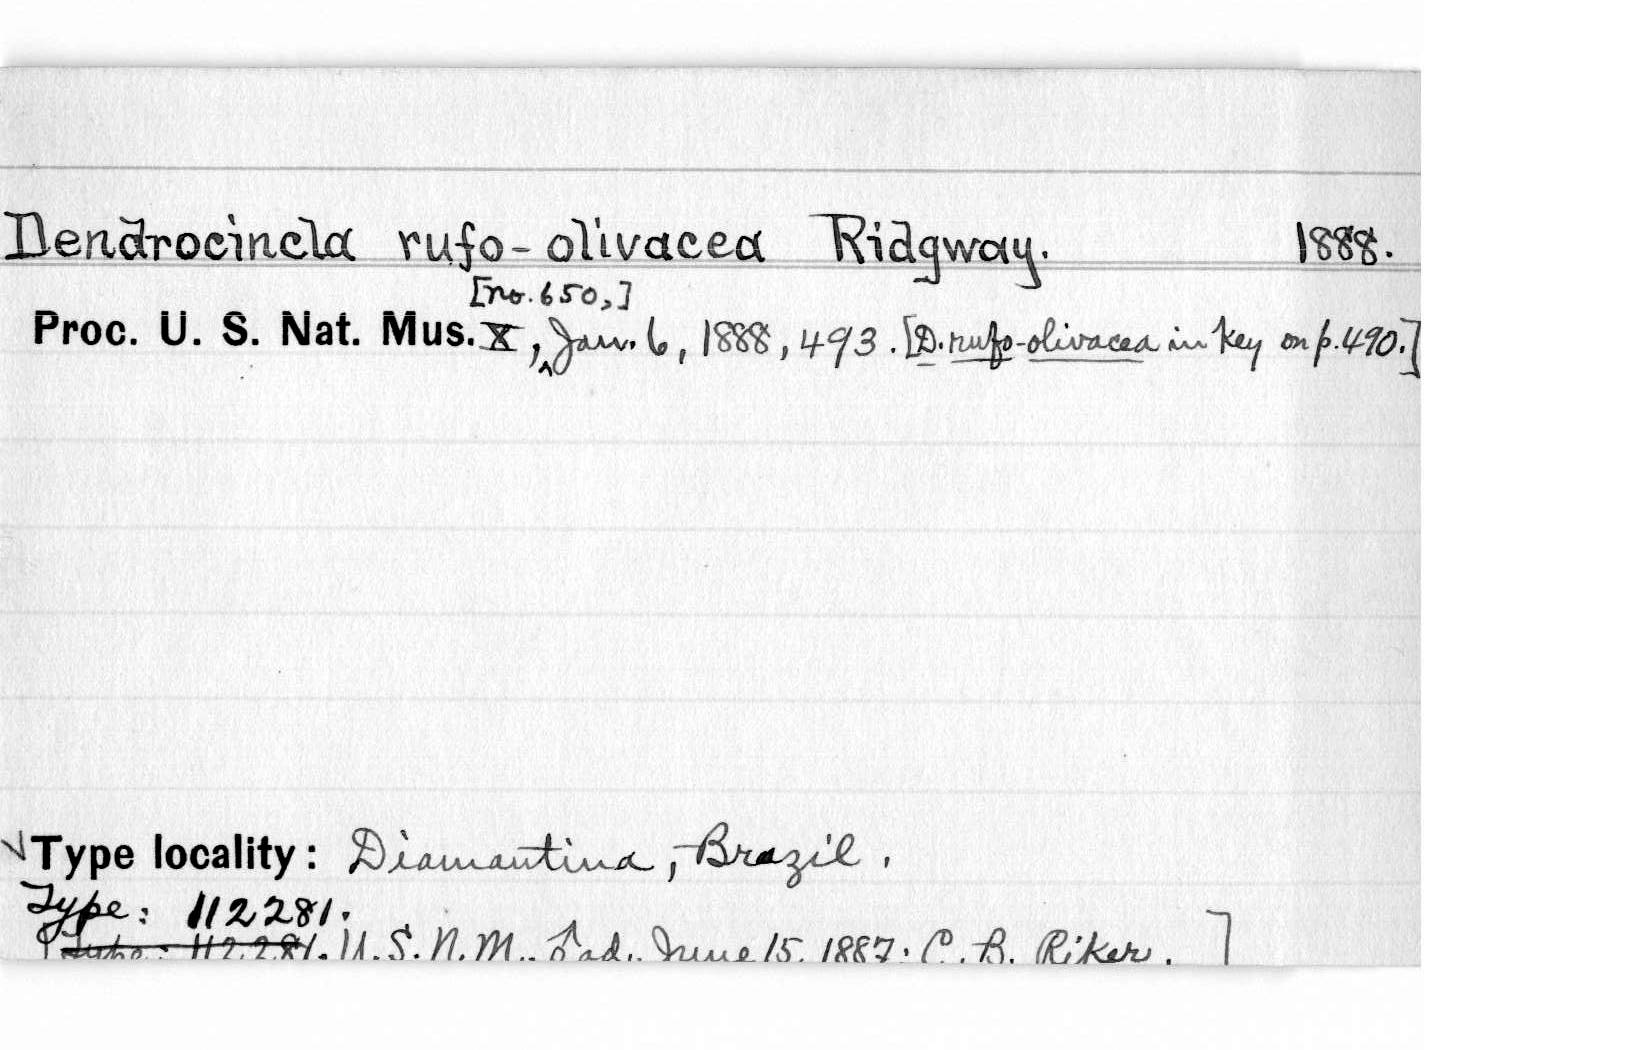 Dendrocincla rufo-olivacea Ridgway. 1888.
[no. 650,]
Proc. U. S. Nat. Mus. X, Jan. 6, 1888, 493. [D. rufo-olivacea in key on p. 490.]
√ Type locality: Diamantina, Brazil.
Type: 112281.
[Type: 112281. U.S.N.M., ♂ ad., June 15, 1887; C. B. Riker. ]